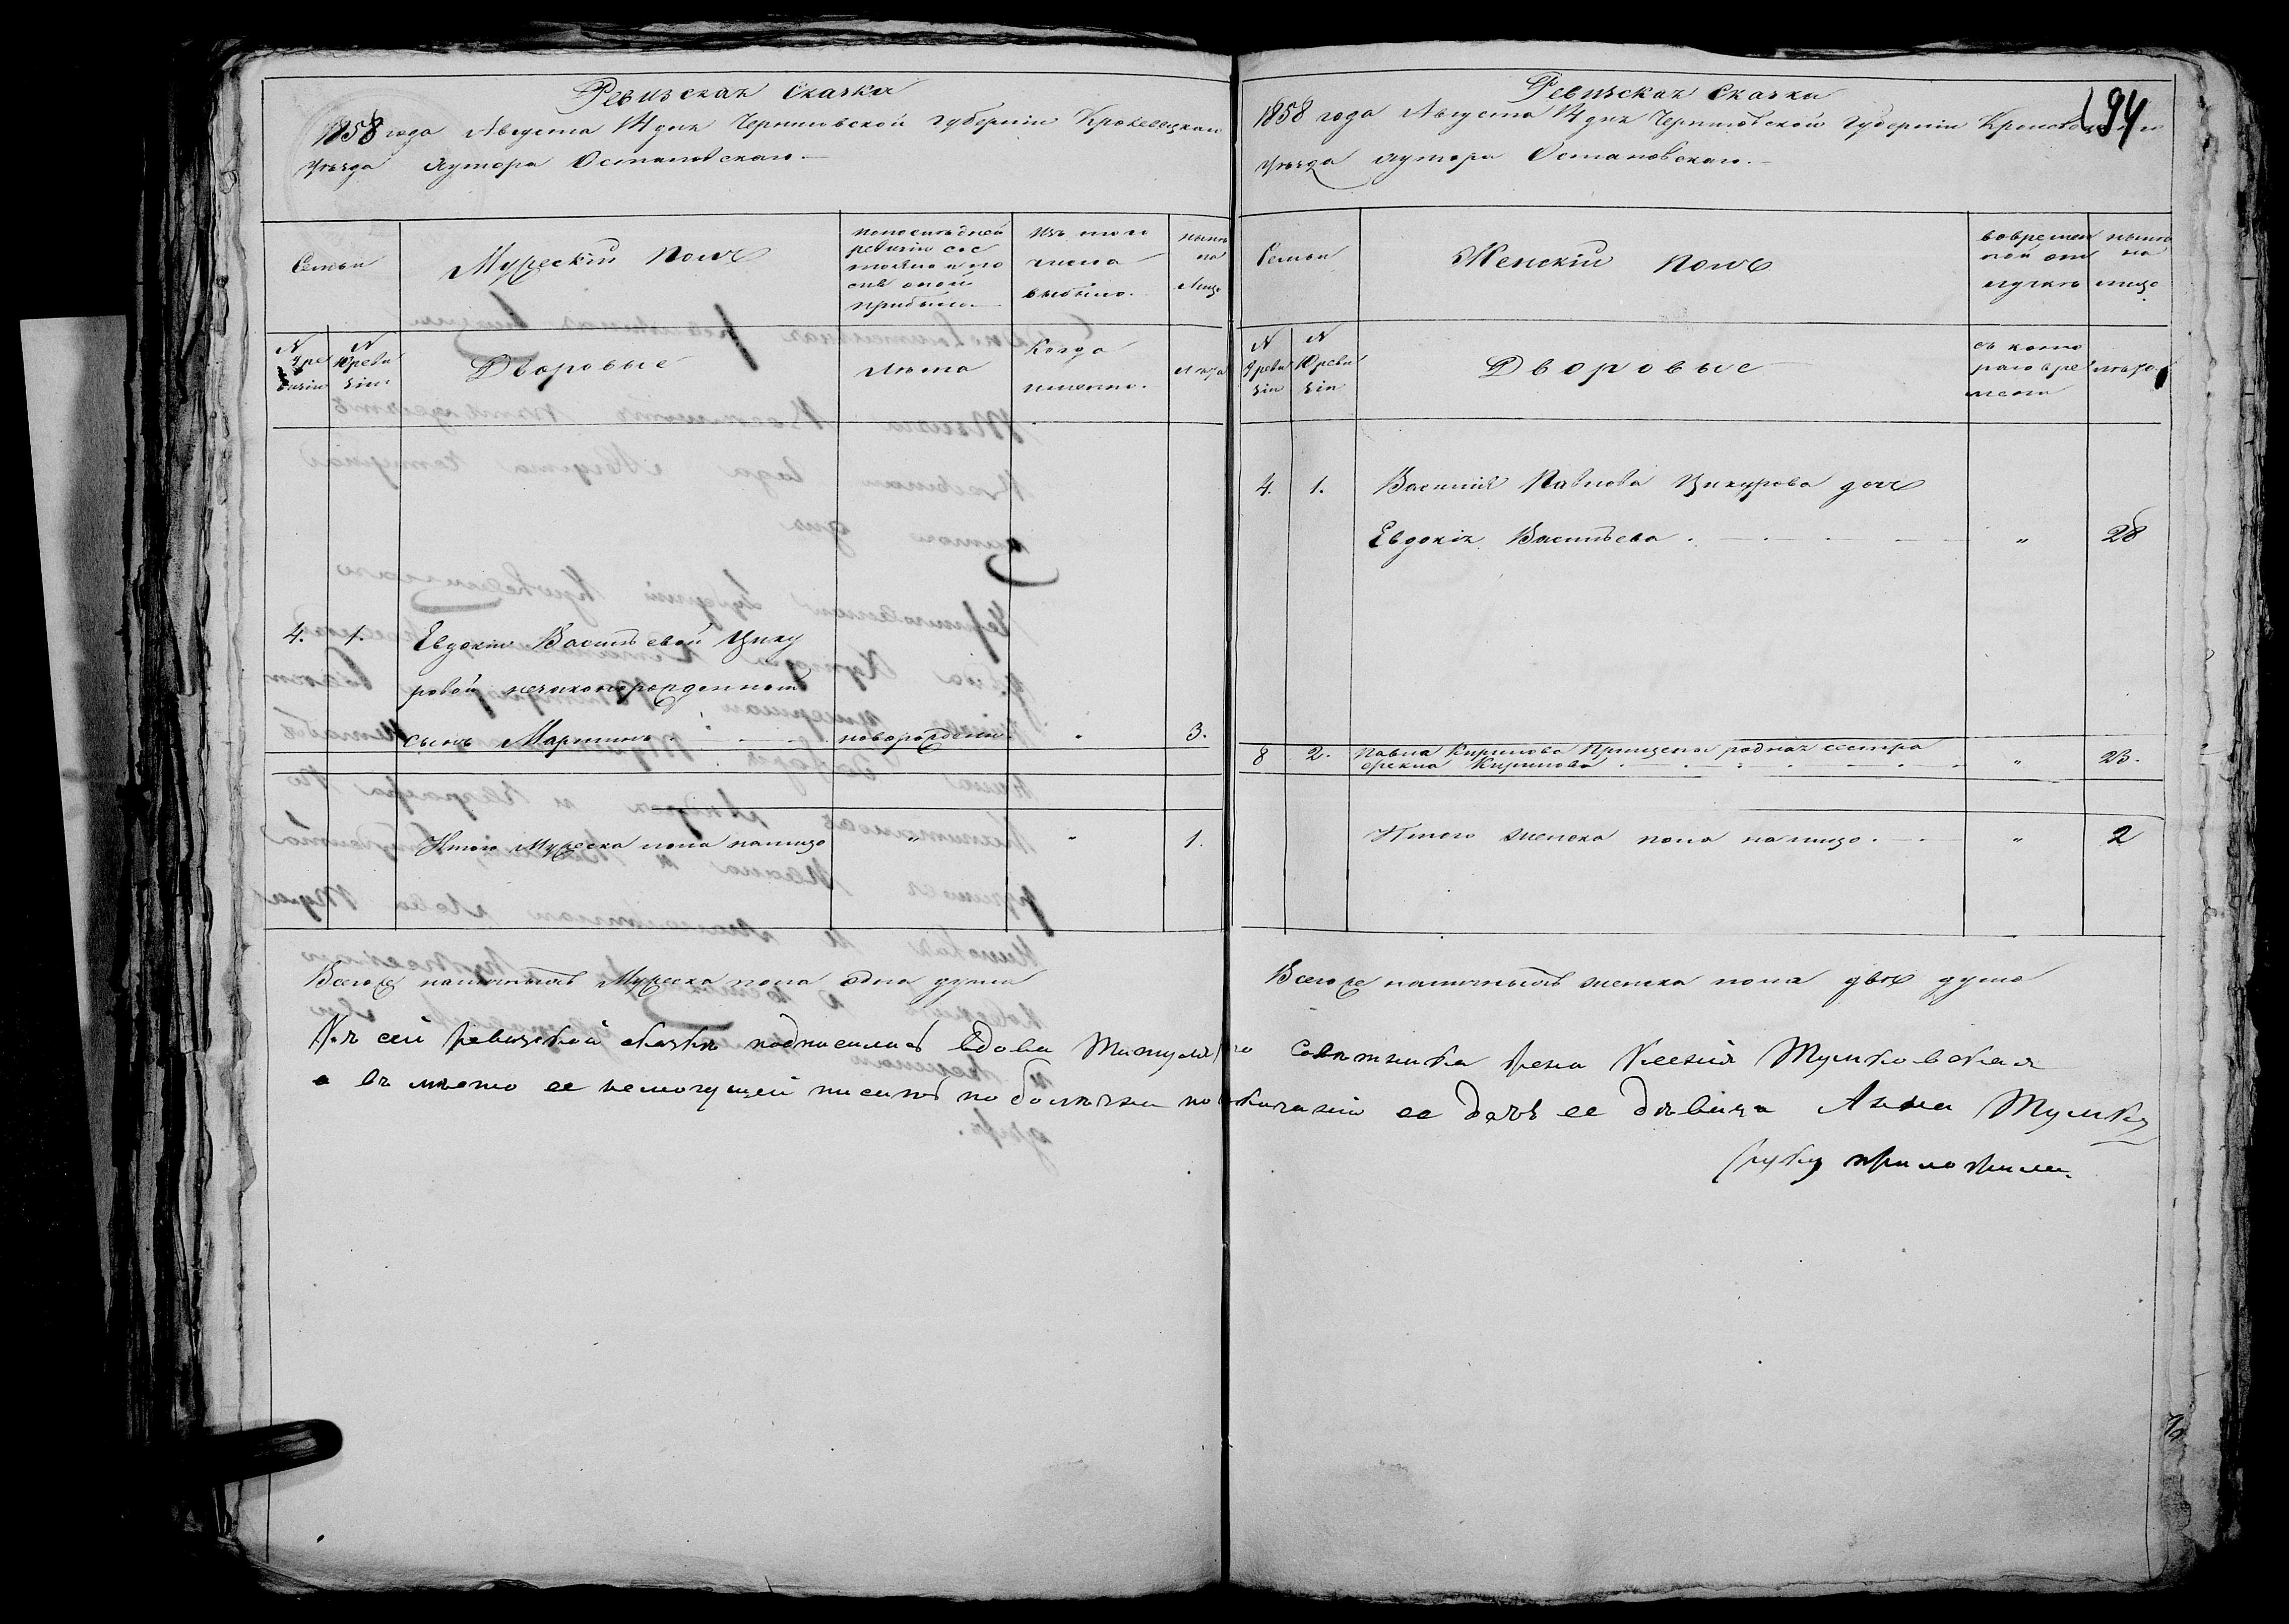 Ревизская Сказка
1858 года Августа 14 дня Черниговской губернии Кролевецкаго
уезда хутора Остановскаго.
Семьи
Мужескій полъ
по последней ревизіи состояло и после оной прибыло.
Изъ того числа выбыло.
ныне на лицо
N 9 ревизіи
N 10 ревизіи
Дворовые
Лета
Когда именно.
лета
4. 1. Евдокіи Васильевой Цику
ровой незаконорожденный
сынъ Мартинъ новорожден. " 3.
Итого Мужеска пола налицо " " 1.
Всегоже наличныхъ Мужеска пола одна душа
Ревизская Сказка
194
1858 года Августа 14 дня Черниговской Губерніи
уезда хутора Остановскаго.
Семьи
Женскій полъ
во временной отлучке
ныне на лицо
N 9 ревизіи
N 10 ревизіи
Дворовые
съ котораго времени
лета
4. 1. Василія Павлова Цикурова дочь
Евдокія Васильева " 28
8 2. Павла Кирилова родная сестра
Фекла Кирилова " 23.
Итого женска пола налицо " 2
Всегоже наличныхъ женска пола две души
Къ сей ревизской сказке подписалась вдова Титулярно Советника жена Ксенія Тумковская
а въ место ее немогущей писать по болезни по ее дочь ее девица Анна Тумков
руку приложила.